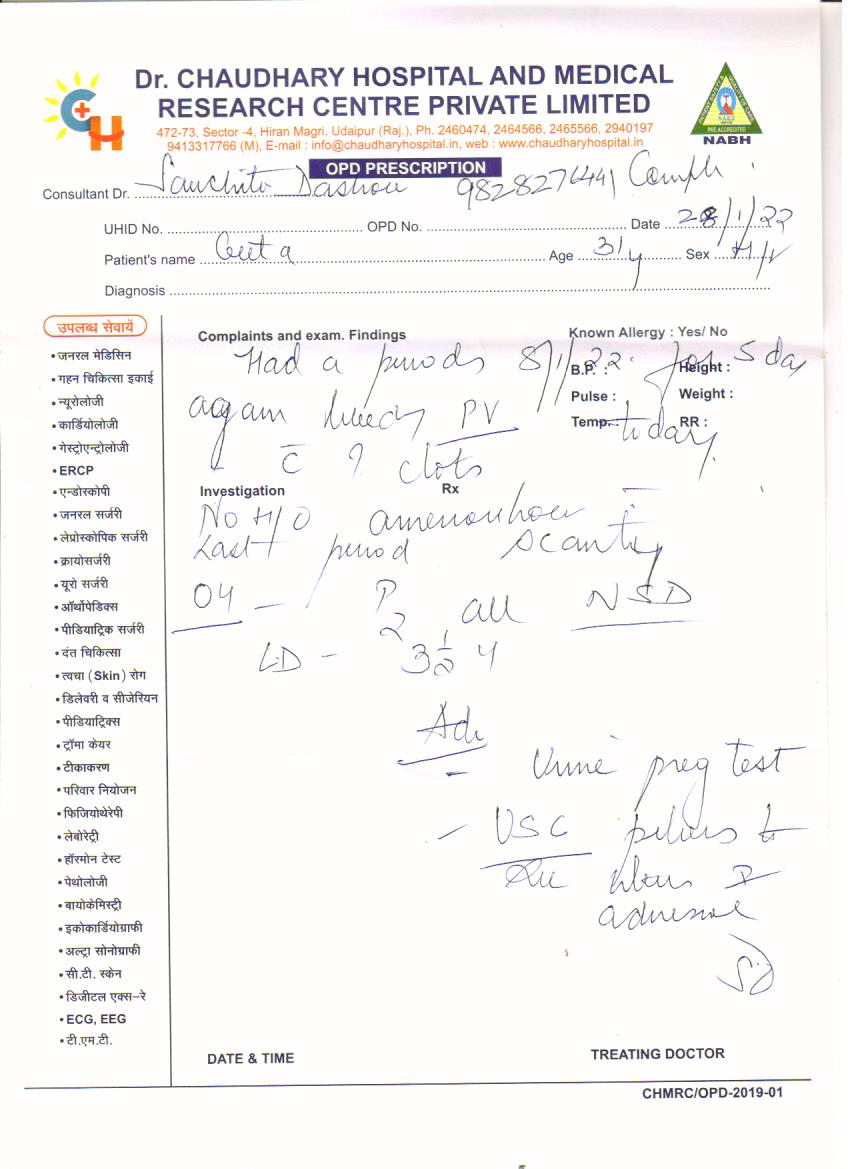 Dr. CHAUDHARY HOSPITAL AND MEDICAL
RESEARCH CENTRE PRIVATE LIMITED
472-73, Sector -4, Hiran Magri, Udaipur (Raj.), Ph. 2460474, 2464566, 2465566, 2940197
9413317766 (M), E-mail : info@chaudharyhospital.in, web : www.chaudharyhospital.in
PRE ACCREDITED
NABH
OPD PRESCRIPTION
Consultant Dr.
UHID No. OPD No. Date 28/1/22
Patient's name Geeta Age 31y Sex
Diagnosis
उपलब्ध सेवायें
• जनरल मेडिसिन
• गहन चिकित्सा इकाई
• न्यूरोलोजी
• कार्डियोलोजी
• गेस्ट्रोएन्ट्रोलोजी
• ERCP
• एन्डोस्कोपी
• जनरल सर्जरी
• लेप्रोस्कोपिक सर्जरी
• क्रायोसर्जरी
• यूरो सर्जरी
• ऑर्थोपेडिक्स
• पीडियाट्रिक सर्जरी
• दंत चिकित्सा
• त्वचा (Skin) रोग
• डिलेवरी व सीजेरियन
• पीडियाट्रिक्स
• ट्रॉमा केयर
• टीकाकरण
• परिवार नियोजन
• फिजियोथेरेपी
• लेबोरेट्री
• हॉरमोन टेस्ट
• पेथोलोजी
• बायोकेमिस्ट्री
• इकोकार्डियोग्राफी
• अल्ट्रा सोनोग्राफी
• सी.टी. स्केन
• डिजीटल एक्स-रे
• ECG, EEG
• टी.एम.टी.
Complaints and exam. Findings Known Allergy : Yes/ No
Had a periods 8/1/22 for 5 day
B.P. : Height :
Pulse : Weight :
again PV today
Temp. : RR :
c ? clots
Investigation Rx
No H/O
Last period scanty
OH - P2 all NSD
LD - 3 1/2 y
Adv
- Urine preg test
- USG pelvis to
adnexae
DATE & TIME TREATING DOCTOR
CHMRC/OPD-2019-01